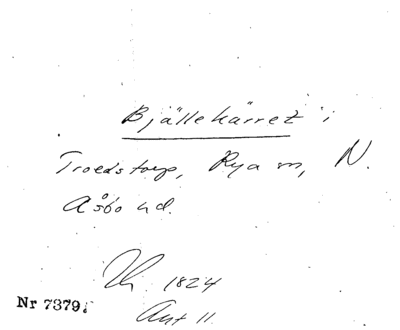 Bjällekärret i
Troedstorp, Rya sn, N.
Åsbo hd.
1824
Nr 7379.
Akt 11.